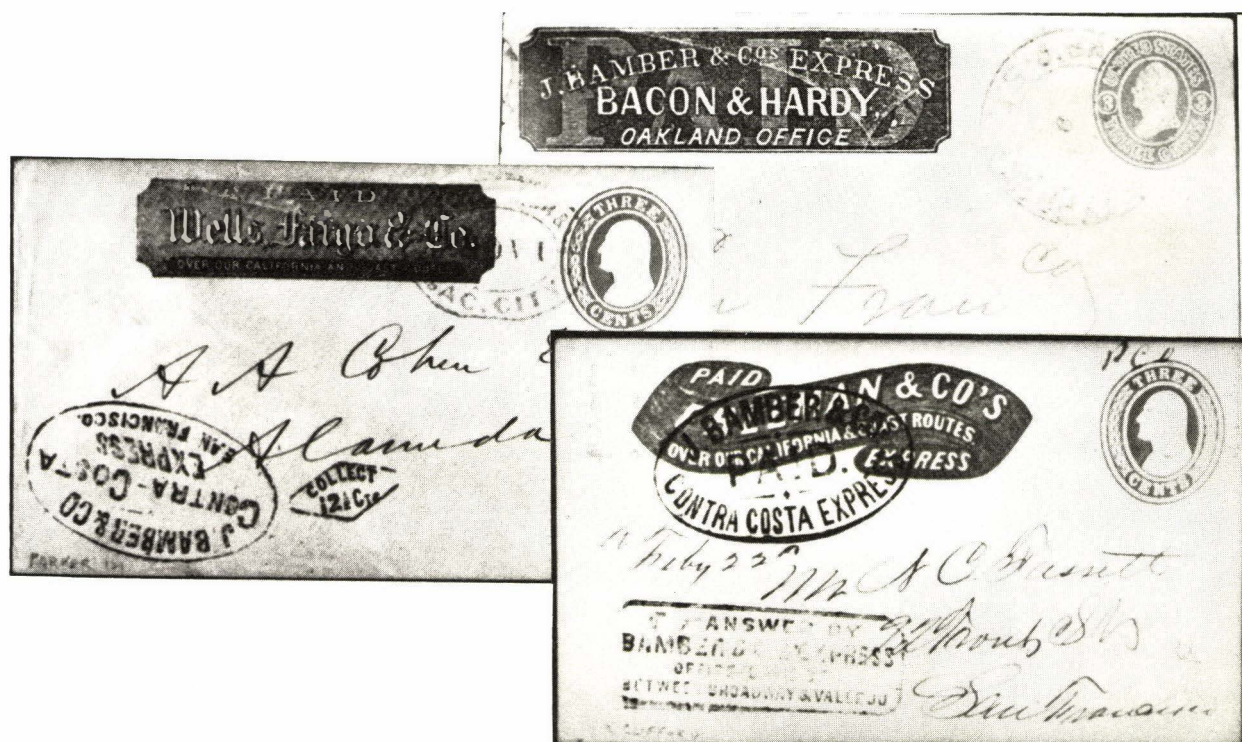 PAID
J. BAMBER & COS EXPRESS
BACON & HARDY
OAKLAND OFFICE
UNITED STATES
3 3
THREE CENTS
Fran co
PAID
Wells, Fargo & Co.
OVER OUR CALIFORNIA AN COAST
SAC. CIT
THREE
CENTS
A A Cohen
Alameda
J. BAMBER & CO
CONTRA-COSTA
EXPRESS
SAN FRANCISCO.
COLLECT
12½ Cts
PAID
& CO'S
OVER OUR CALIFORNIA & COAST ROUTES
EXPRESS
J. BAMBER & CO
PAID.
CONTRA COSTA EXPRESS
THREE
CENTS
Feby 22
Mr N C Fassett
Front St
San Francisco
ANSWER BY
BAMBER EXPRESS
OFFICE
BETWEEN BROADWAY & VALLEJO